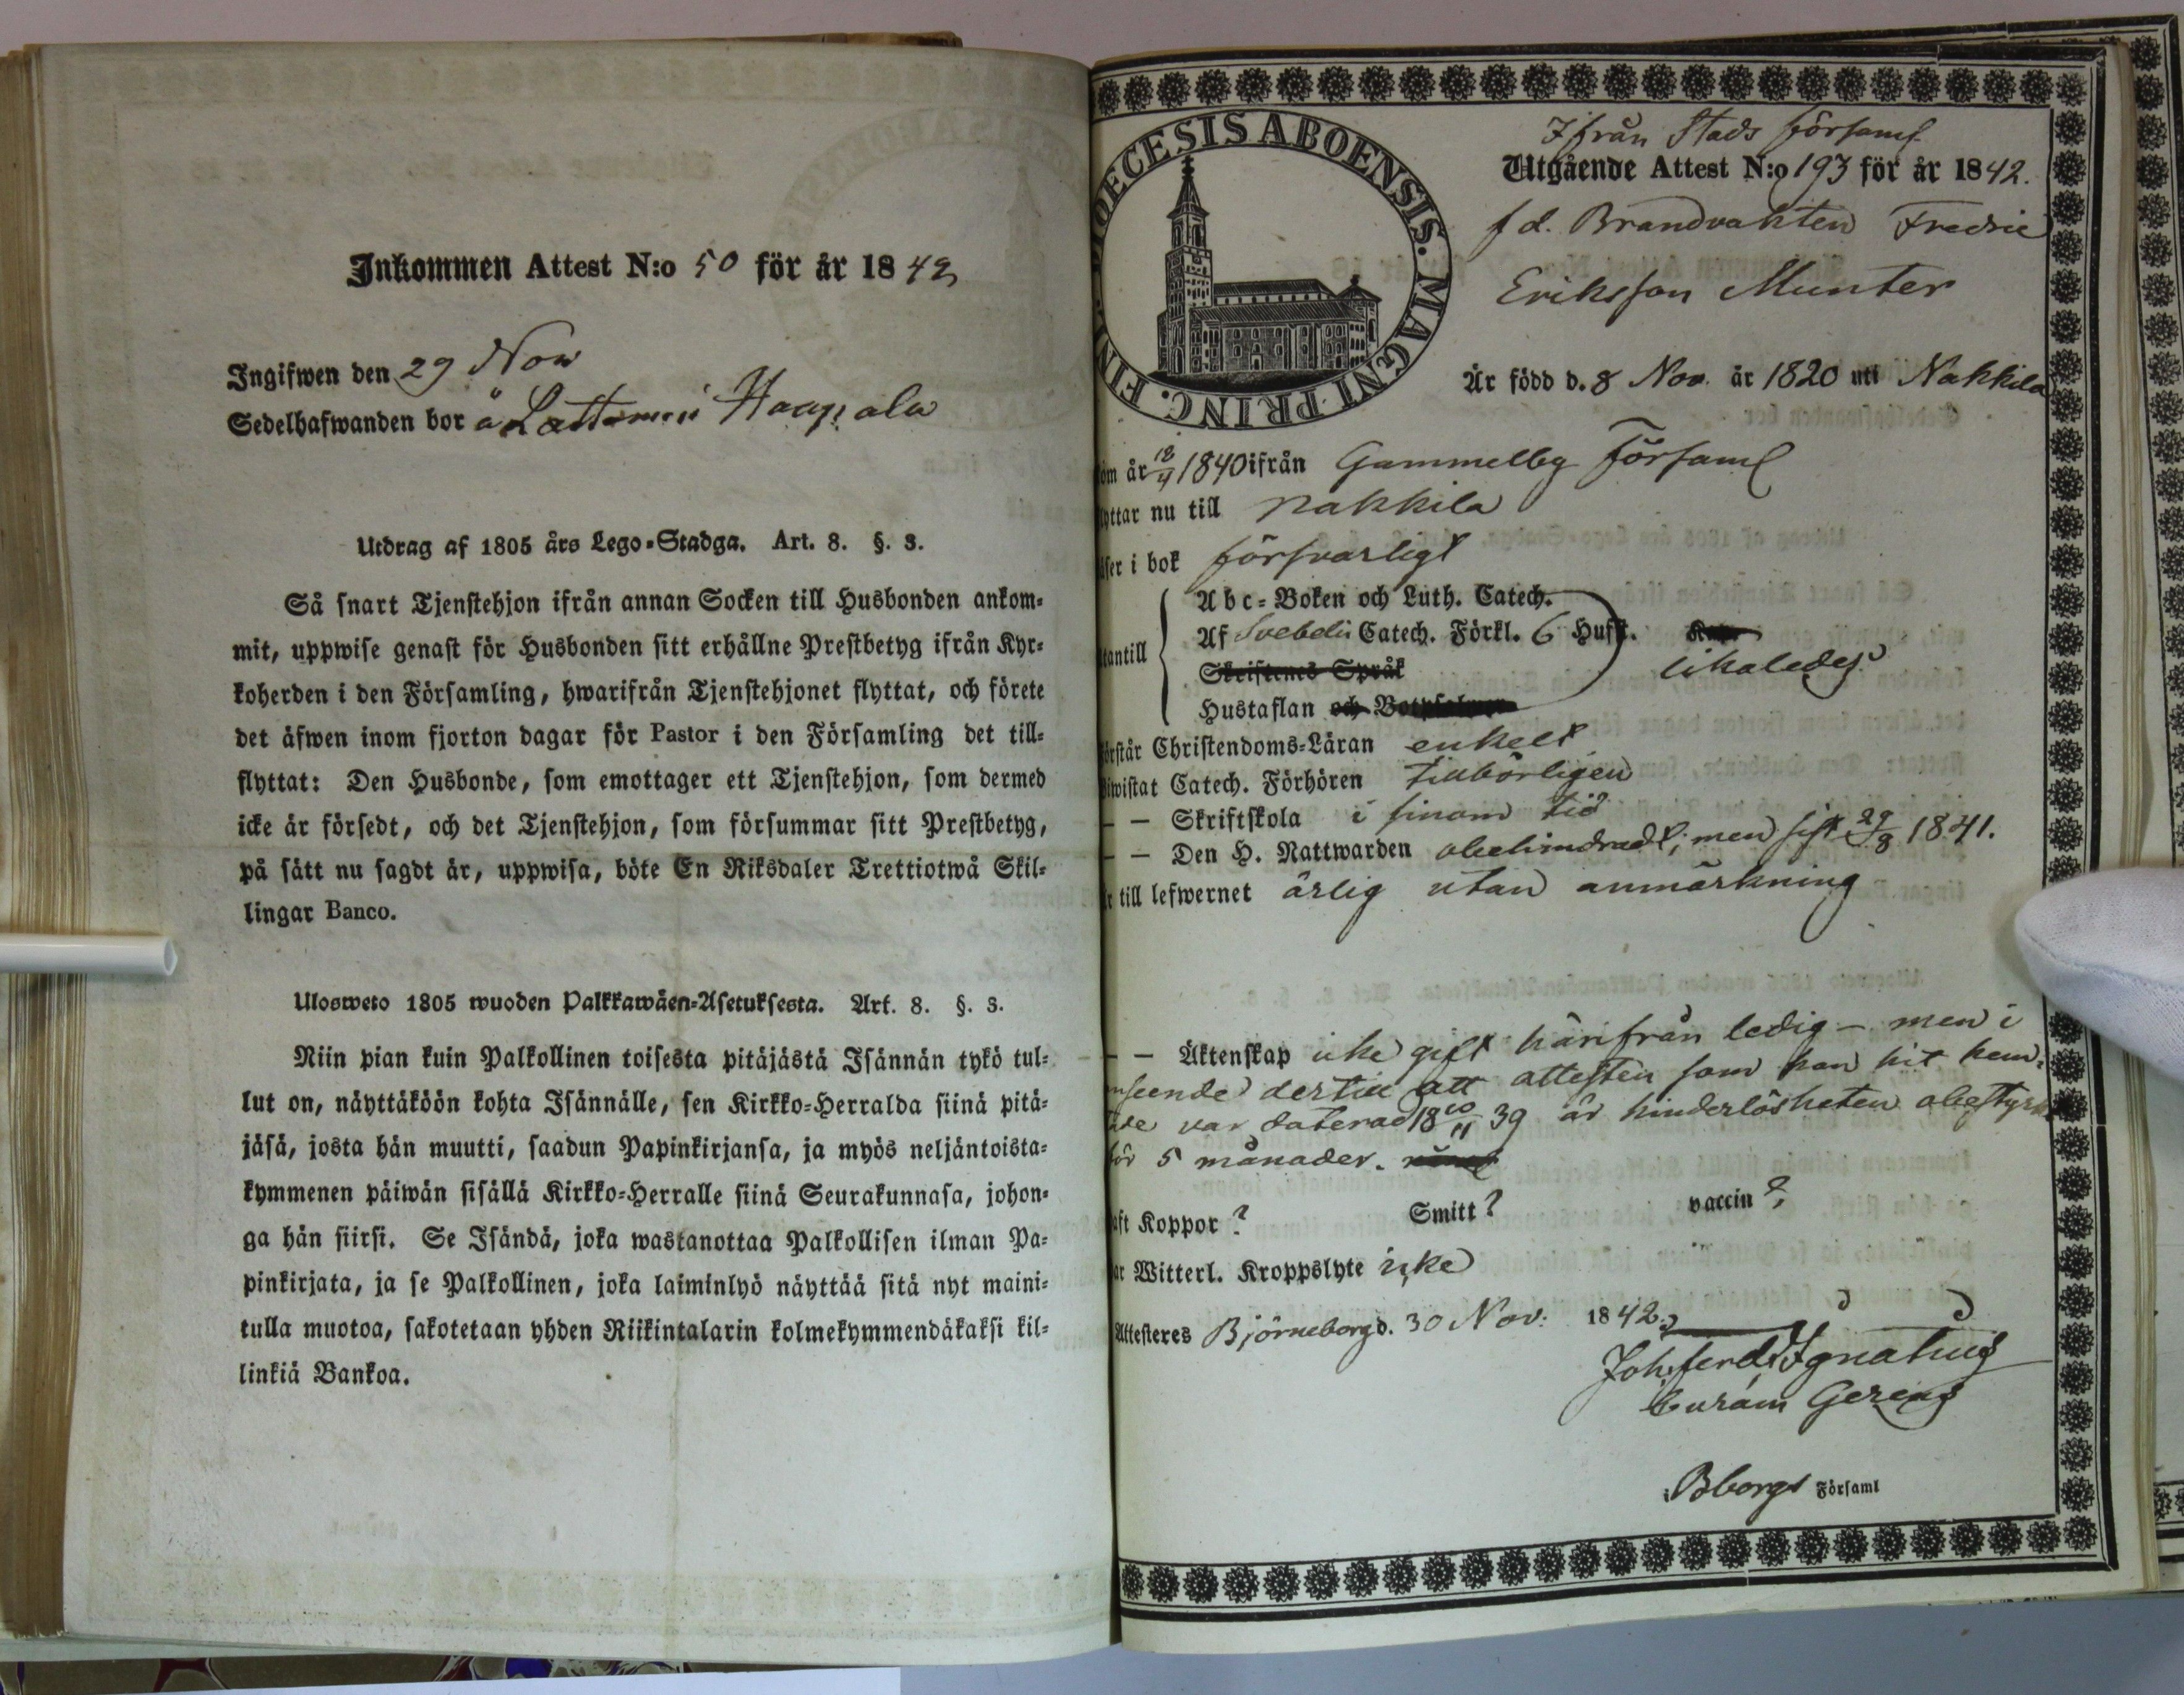 Inkommen Attest N:o 50 för år 1842
Ingifwen den 29 Nov
Sedelhafwanden bor å Lattomeri Haapala
Utdrag af 1805 års Lego-Stadga. Art. 8. §. 3.
Så snart Tjenstehjon ifrån annan Socken till Husbonden ankom-
mit, uppwise genast för Husbonden sitt erhållne Prestbetyg ifrån Kyr-
koherden i den Församling, hwarifrån Tjenstehjonet flyttat, och förete
det äfwen inom fjorton dagar för Pastor i den Församling det till-
flyttat: Den Husbonde, som emottager ett Tjenstehjon, som dermed
icke är försedt, och det Tjenstehjon, som försummar sitt Prestbetyg,
på sätt nu sagdt är, uppwisa, böte En Riksdaler Trettiotwå Skil-
lingar Banco.
Ulosweto 1805 wuoden Palkkawäen-Asetuksesta. Art. 8. §. 3.
Niin pian kuin Palkollinen toisesta pitäjästä Isännän tykö tul-
lut on, näyttäköön kohta Isännälle, sen Kirkko-Herralda siinä pitä-
jäsä, josta hän muutti, saadun Papinkirjansa, ja myös neljäntoista-
kymmenen päiwän sisällä Kirkko-Herralle siinä Seurakunnasa, johon-
ga hän siirsi. Se Isändä, joka wastanottaa Palkollisen ilman Pa-
pinkirjata, ja se Palkollinen, joka laiminlyö näyttää sitä nyt maini-
tulla muotoa, sakotetaan yhden Riikintalarin kolmekymmendäkaksi kil-
linkiä Bankoa.
DIOECESIS ABOENSIS. MAGNI PRINC. FINL.
Ifrån Stads Församl
Utgående Attest N:o 193 för år 1842.
f d. Brandvakten Fredric
Eriksson Munter
Är född d. 8 Nov. år 1820 uti Nakkila
om år 18/4 1840 ifrån Gammelby Församl
yttar nu till Nakkila
äser i bok försvarligt
Abc-Boken och Luth. Catech.
Af Svebelii Catech. Förkl. 6 Hufst.
tantill
likaledes
Skriftenes Språk
Hustaflan och Botpsalmer
örstår Christendoms-Läran enkelt
iwistat Catech. Förhören tillbörligen
— — Skriftskola i sinom tid
— — Den H. Nattwarden obehindradt; men sist 29/8 1841.
r till lefwernet ärlig utan anmärkning
— — Äktenskap icke gift härifrån ledig — men i
anseende dertill att attesten som han hit hem-
tade var daterad 18 20/11 39 är hinderlösheten obestyrkt
för 5 månader.
aft Koppor? Smitt? vaccin?
ar Witterl. Kroppslyte icke
Attesteres Björneborg d. 30 Nov: 1842.
Joh. Ferd. Ignatius
Curam Gerens
i Bborgs Församl